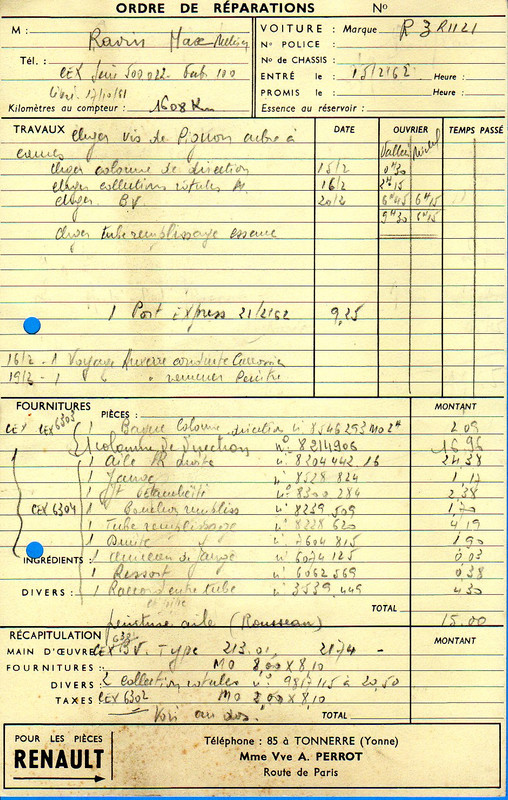 ORDRE DE RÉPARATIONS No
M : Ravin Max
Tél. :
CEX 100
Livré 17/10/61
Kilomètres au compteur : 1608 Km
VOITURE : Marque R 3 R1121
No POLICE :
No de CHASSIS :
ENTRÉ le : 15/2/62 Heure :
PROMIS le : Heure :
Essence au réservoir :
TRAVAUX DATE OUVRIER TEMPS PASSÉ
changer vis de Pignon arbre à
cames
changer colonne de direction 15/2 0H30
changer collections rotules AV 16/2 2H15
changer BV 20/2 6H45 6H15
9H30 6H15
changer tube remplissage essence
1 Port Express 21/2/62 9,25
16/2 - 1 Voyage Auxerre conduite
19/2 - 1 " " ramener Peintre
FOURNITURES MONTANT
PIÈCES :
CEX 6303 1 Bague Colonne direction no 8546293 2,09
1 colonne de direction no 8214906 16,96
1 Aile AR droite no 8304442 16 24,38
1 Jauge no 8528 824 1,17
1 Jt Etanchéité no 8300 284 2,38
CEX 6304 1 Bouchon rempliss no 8239 509 1,70
1 Tube remplissage no 8228 620 4,19
1 Durite no 7604 815 1,90
INGRÉDIENTS : 1 anneau de jauge no 6074125 0,03
1 Ressort no 6062 569 0,38
DIVERS : 1 Raccord entre tube no 3539,449 4,30
TOTAL
peinture aile (Rousseau) 15.00
RÉCAPITULATION MONTANT
MAIN D'ŒUVRE CEX BV. Type 213.01, 2174 -
FOURNITURES : MO 8,00 x 8,10
DIVERS : 2 collection rotules no à 20,50
TAXES CEX 6302 MO 2,00 x 8,10
Voir au dos. TOTAL
POUR LES PIÈCES
RENAULT
Téléphone : 85 à TONNERRE (Yonne)
Mme Vve A. PERROT
Route de Paris